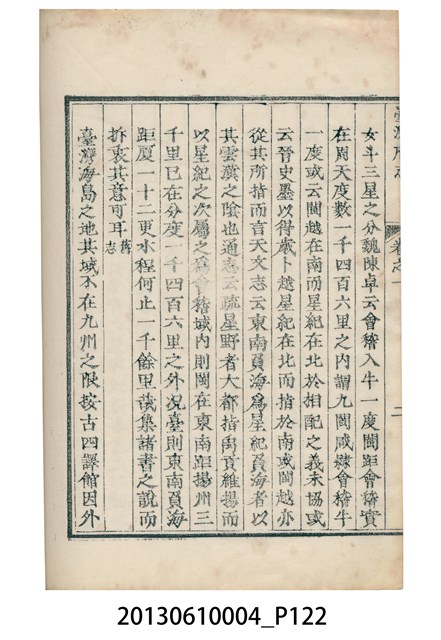 臺灣府志
卷之一
二
女斗三星之分魏陳卓云會稽入牛一度閩距會稽實
在周天度數一千四百六里之內謂九閩咸隸會稽牛
一度或云閩越在南而星紀在北於相配之義未協或
云晉史墨以得歲卜越星紀在北而指於南或閩越亦
從其所指而言天文志云東南負海為星紀負海者以
其雲漢之陰也通志云疏星野者大都指禹貢維揚而
以星紀之次屬之會稽域內則閩在東南距揚州三
千里已在分度一千四百六里之外况臺則東南負海
距廈一十二更水程何止一千餘里哉集諸書之說而
折衷其意可耳舊志
臺灣海島之地其域不在九州之陬按古四譯館因外
20130610004_P122